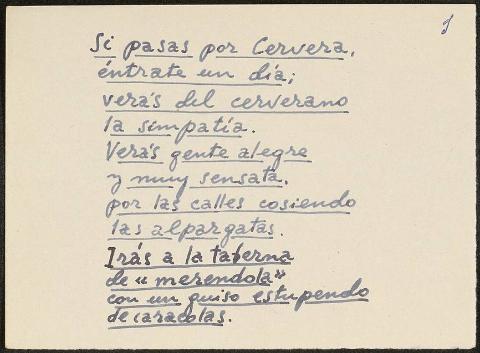 Si pasas por Cervera,
éntrate un día;
verás del cerverano
la simpatía.
Verás gente alegre
y muy sensata,
por las calles cosiendo
las alpargatas.
Irás a la taberna
de "merendola"
con un guiso estupendo
de caracolas.